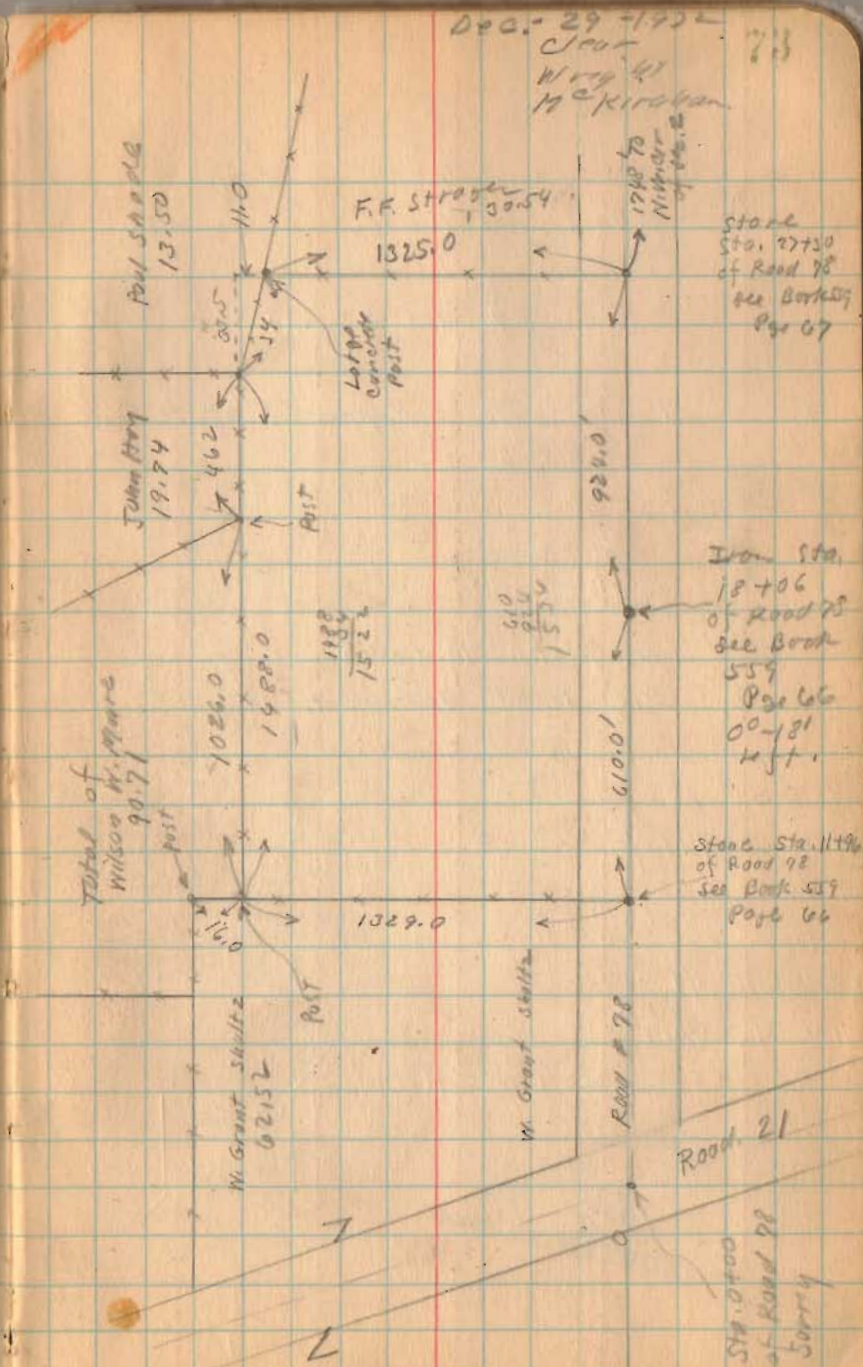 Dec. - 29 - 1922
Clear
Wright
McKirahan
73
Paul Shade
13.50
11.0
F.F. Stroger
130.54
1325.0
1748 to
N
of
Stone
Sta. 27+30
of Road 78
see Book 559
Pge 67
50.5
54
Large
Concrete
Post
John Hoy
19.74
462
Post
924.0'
1488
34
1522
610
924
1534
Iron Sta.
18+06
of Road 78
see Book
559
Pge 66
0°-18'
Lft.
1026.0
1488.0
610.0'
Total of
Wilson W. Moore
90.71
Post
16.0
1329.0
Post
Stone Sta. 11+96
of Road 78
see Book 559
Page 66
W. Grant Shultz
62.52
W. Grant Shultz
Road # 78
Road. 21
Sta. 0+00
of Road 78